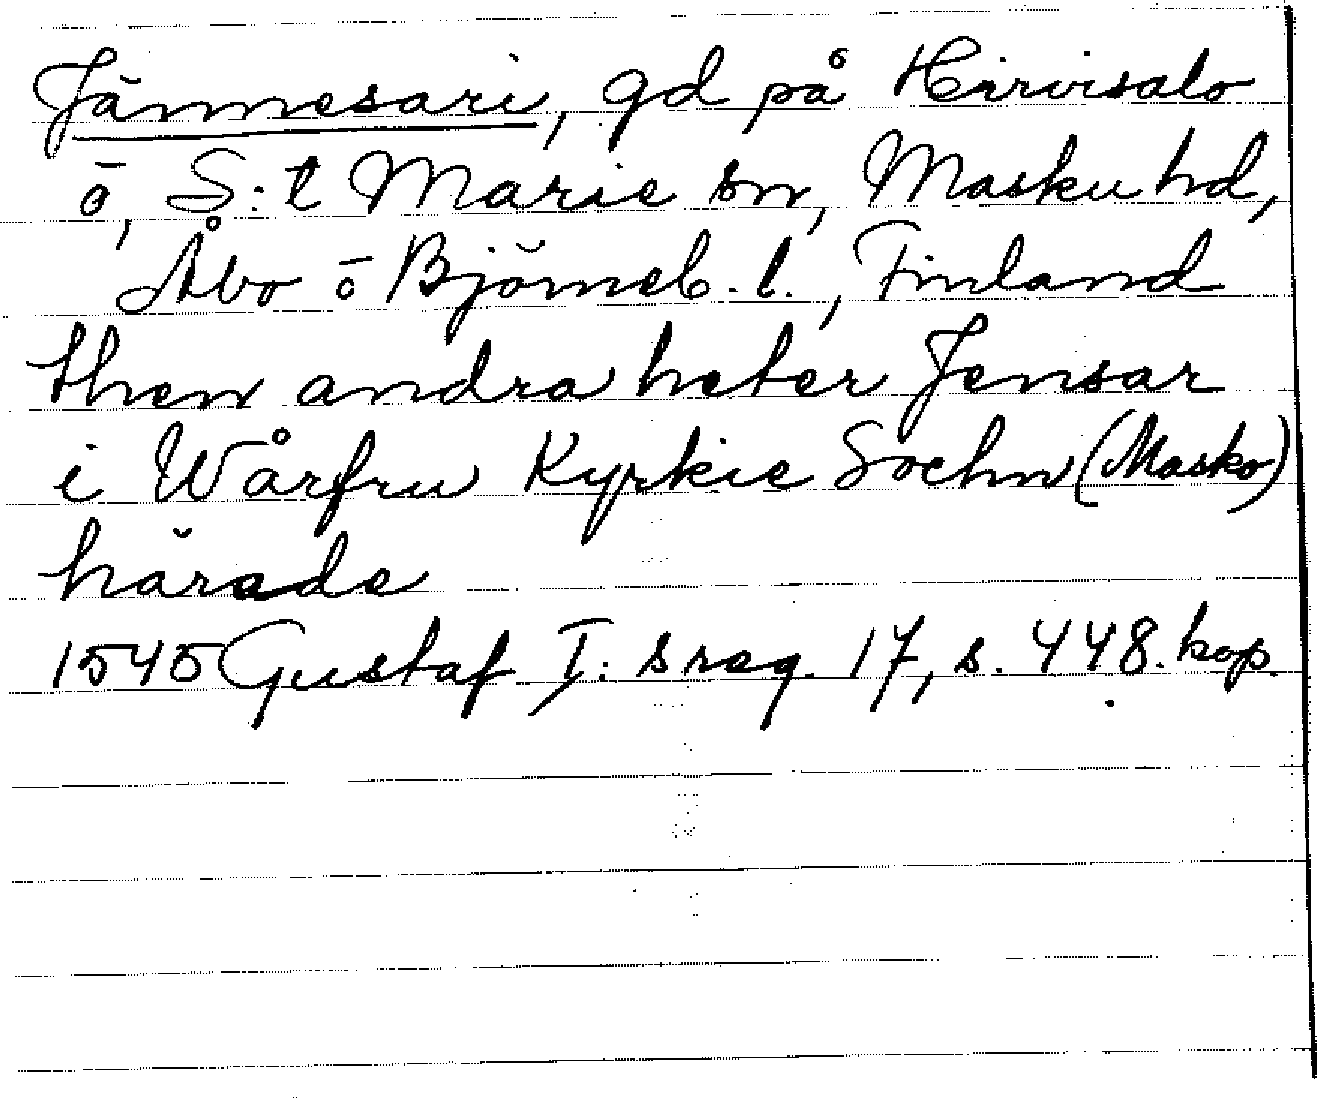 Jännesari, gd på Hirvisalo
ö, S:t Marie sn, Masku hd,
Åbo o Björneb. l., Finland
then andra heter Jensar
i Wårfru Kyrkie Sochn (Masko)
härade
1545 Gustaf I:s reg. 17, s. 448. kop.